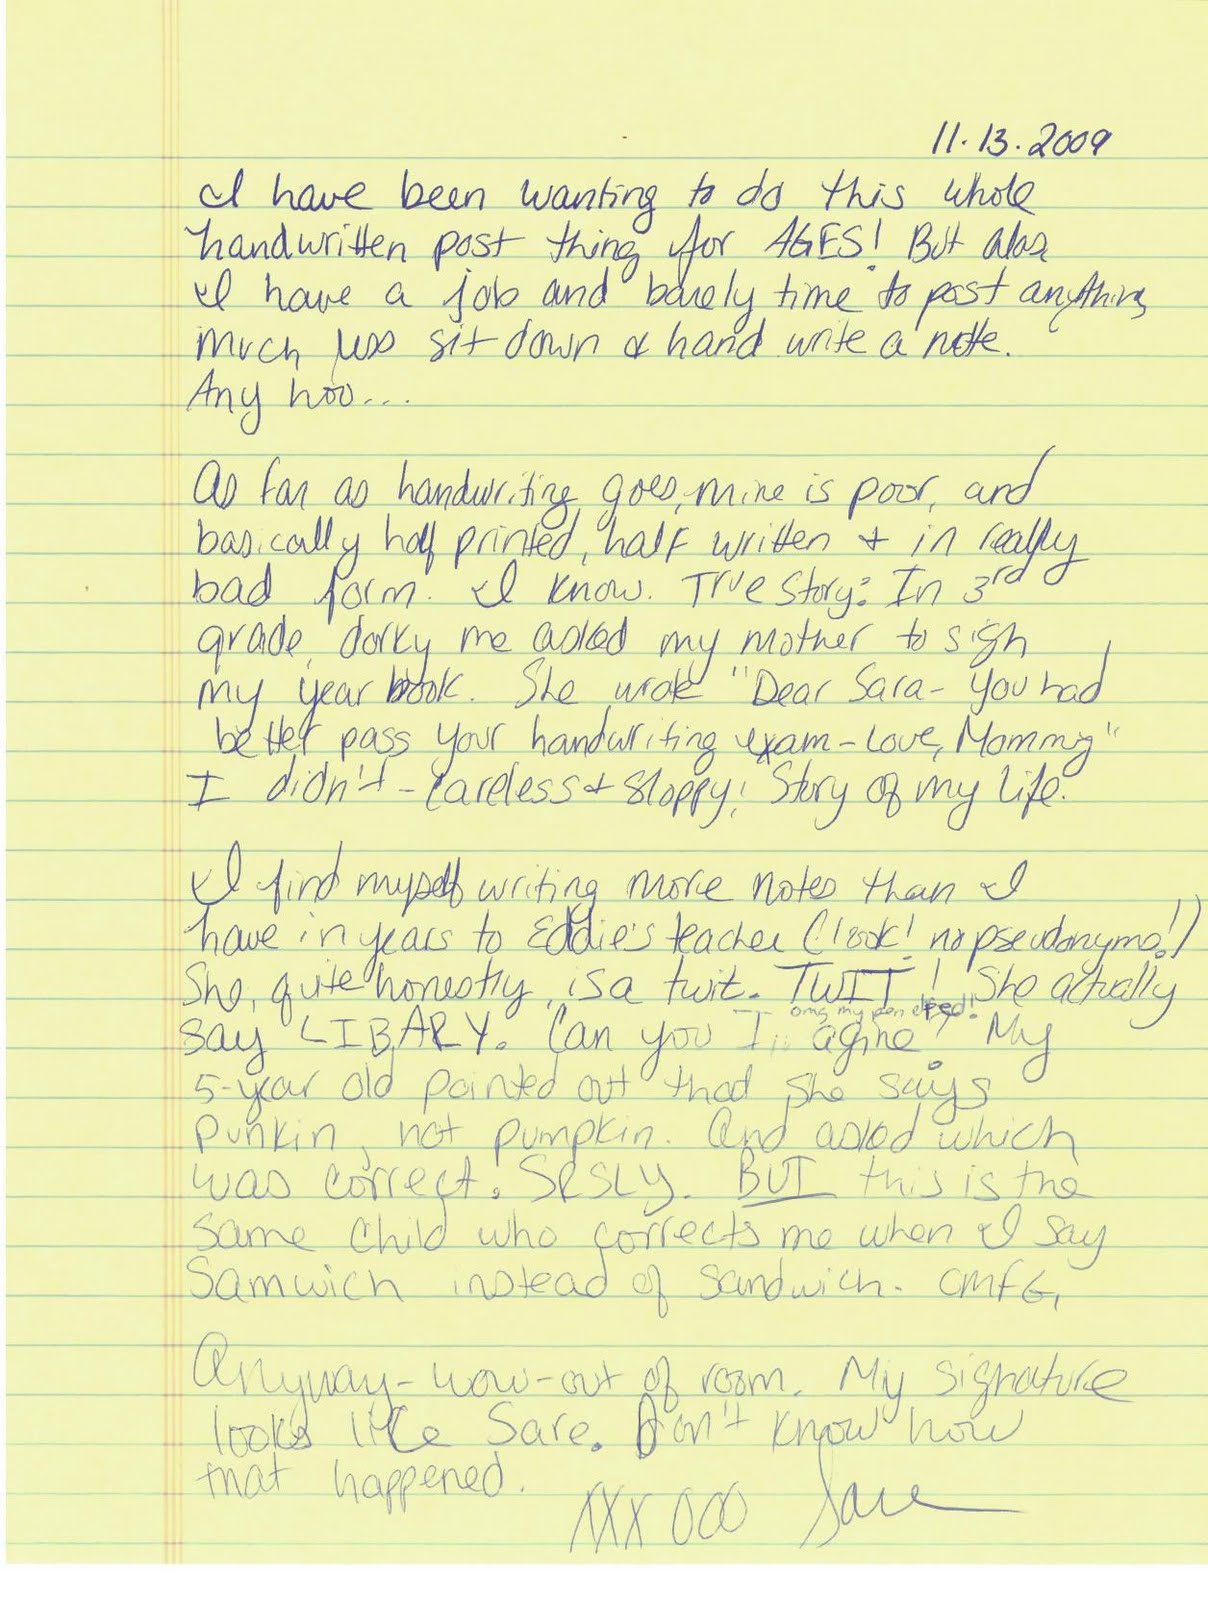 11.13.2009
I have been wanting to do this whole
handwritten post thing for AGES! But alas
I have a job and barely time to post anything
much less sit down & hand write a note.
Any hoo...
As far as handwriting goes, mine is poor, and
basically half printed, half written + in really
bad form. I know. True Story: In 3rd
grade, dorky me asked my mother to sign
my year book. She wrote "Dear Sara - You had
better pass your handwriting exam - Love, Mommy"
I didn't - Careless + Sloppy! Story of my life.
I find myself writing more notes than I
have in years to Eddie's teacher (look! no pseudonyms!)
She, quite honestly, is a twit. TWIT! She actually
omg my pen died!
say LIBARY. Can you Imagine! My
5-year old pointed out that she says
Punkin, not pumpkin. And asked which
was correct. SRSLY. BUT this is the
same child who corrects me when I say
Samwich instead of sandwich. OMFG,
Anyway - wow - out of room. My signature
looks like Sare. Don't know how
that happened.
XXX OOO Sare